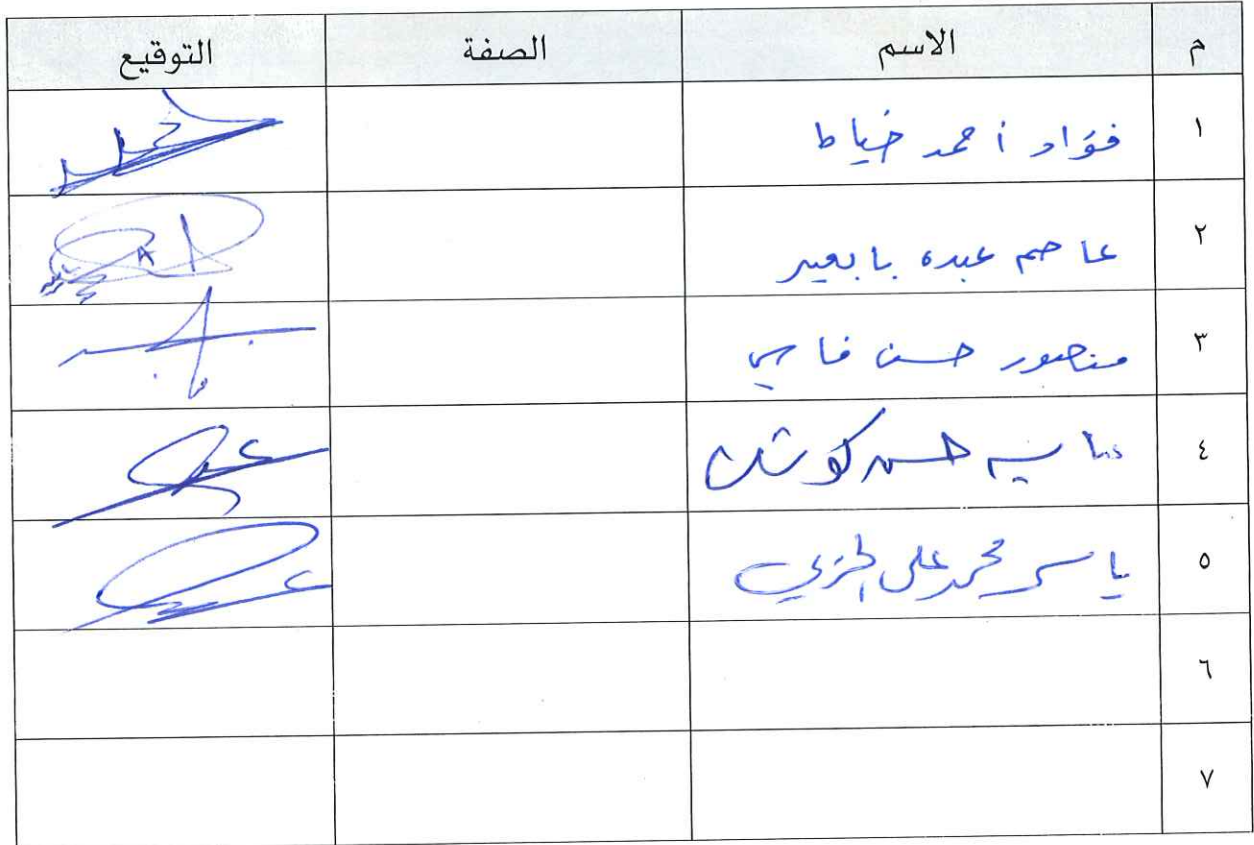 م الاسم الصفة التوقيع
١ فؤاد أحمد خياط
٢ عاصم عبده بابعير
٣ منصور حسن فارسي
٤ حسن كوشك
٥ ياسر محمد علي الحربي
٦
٧